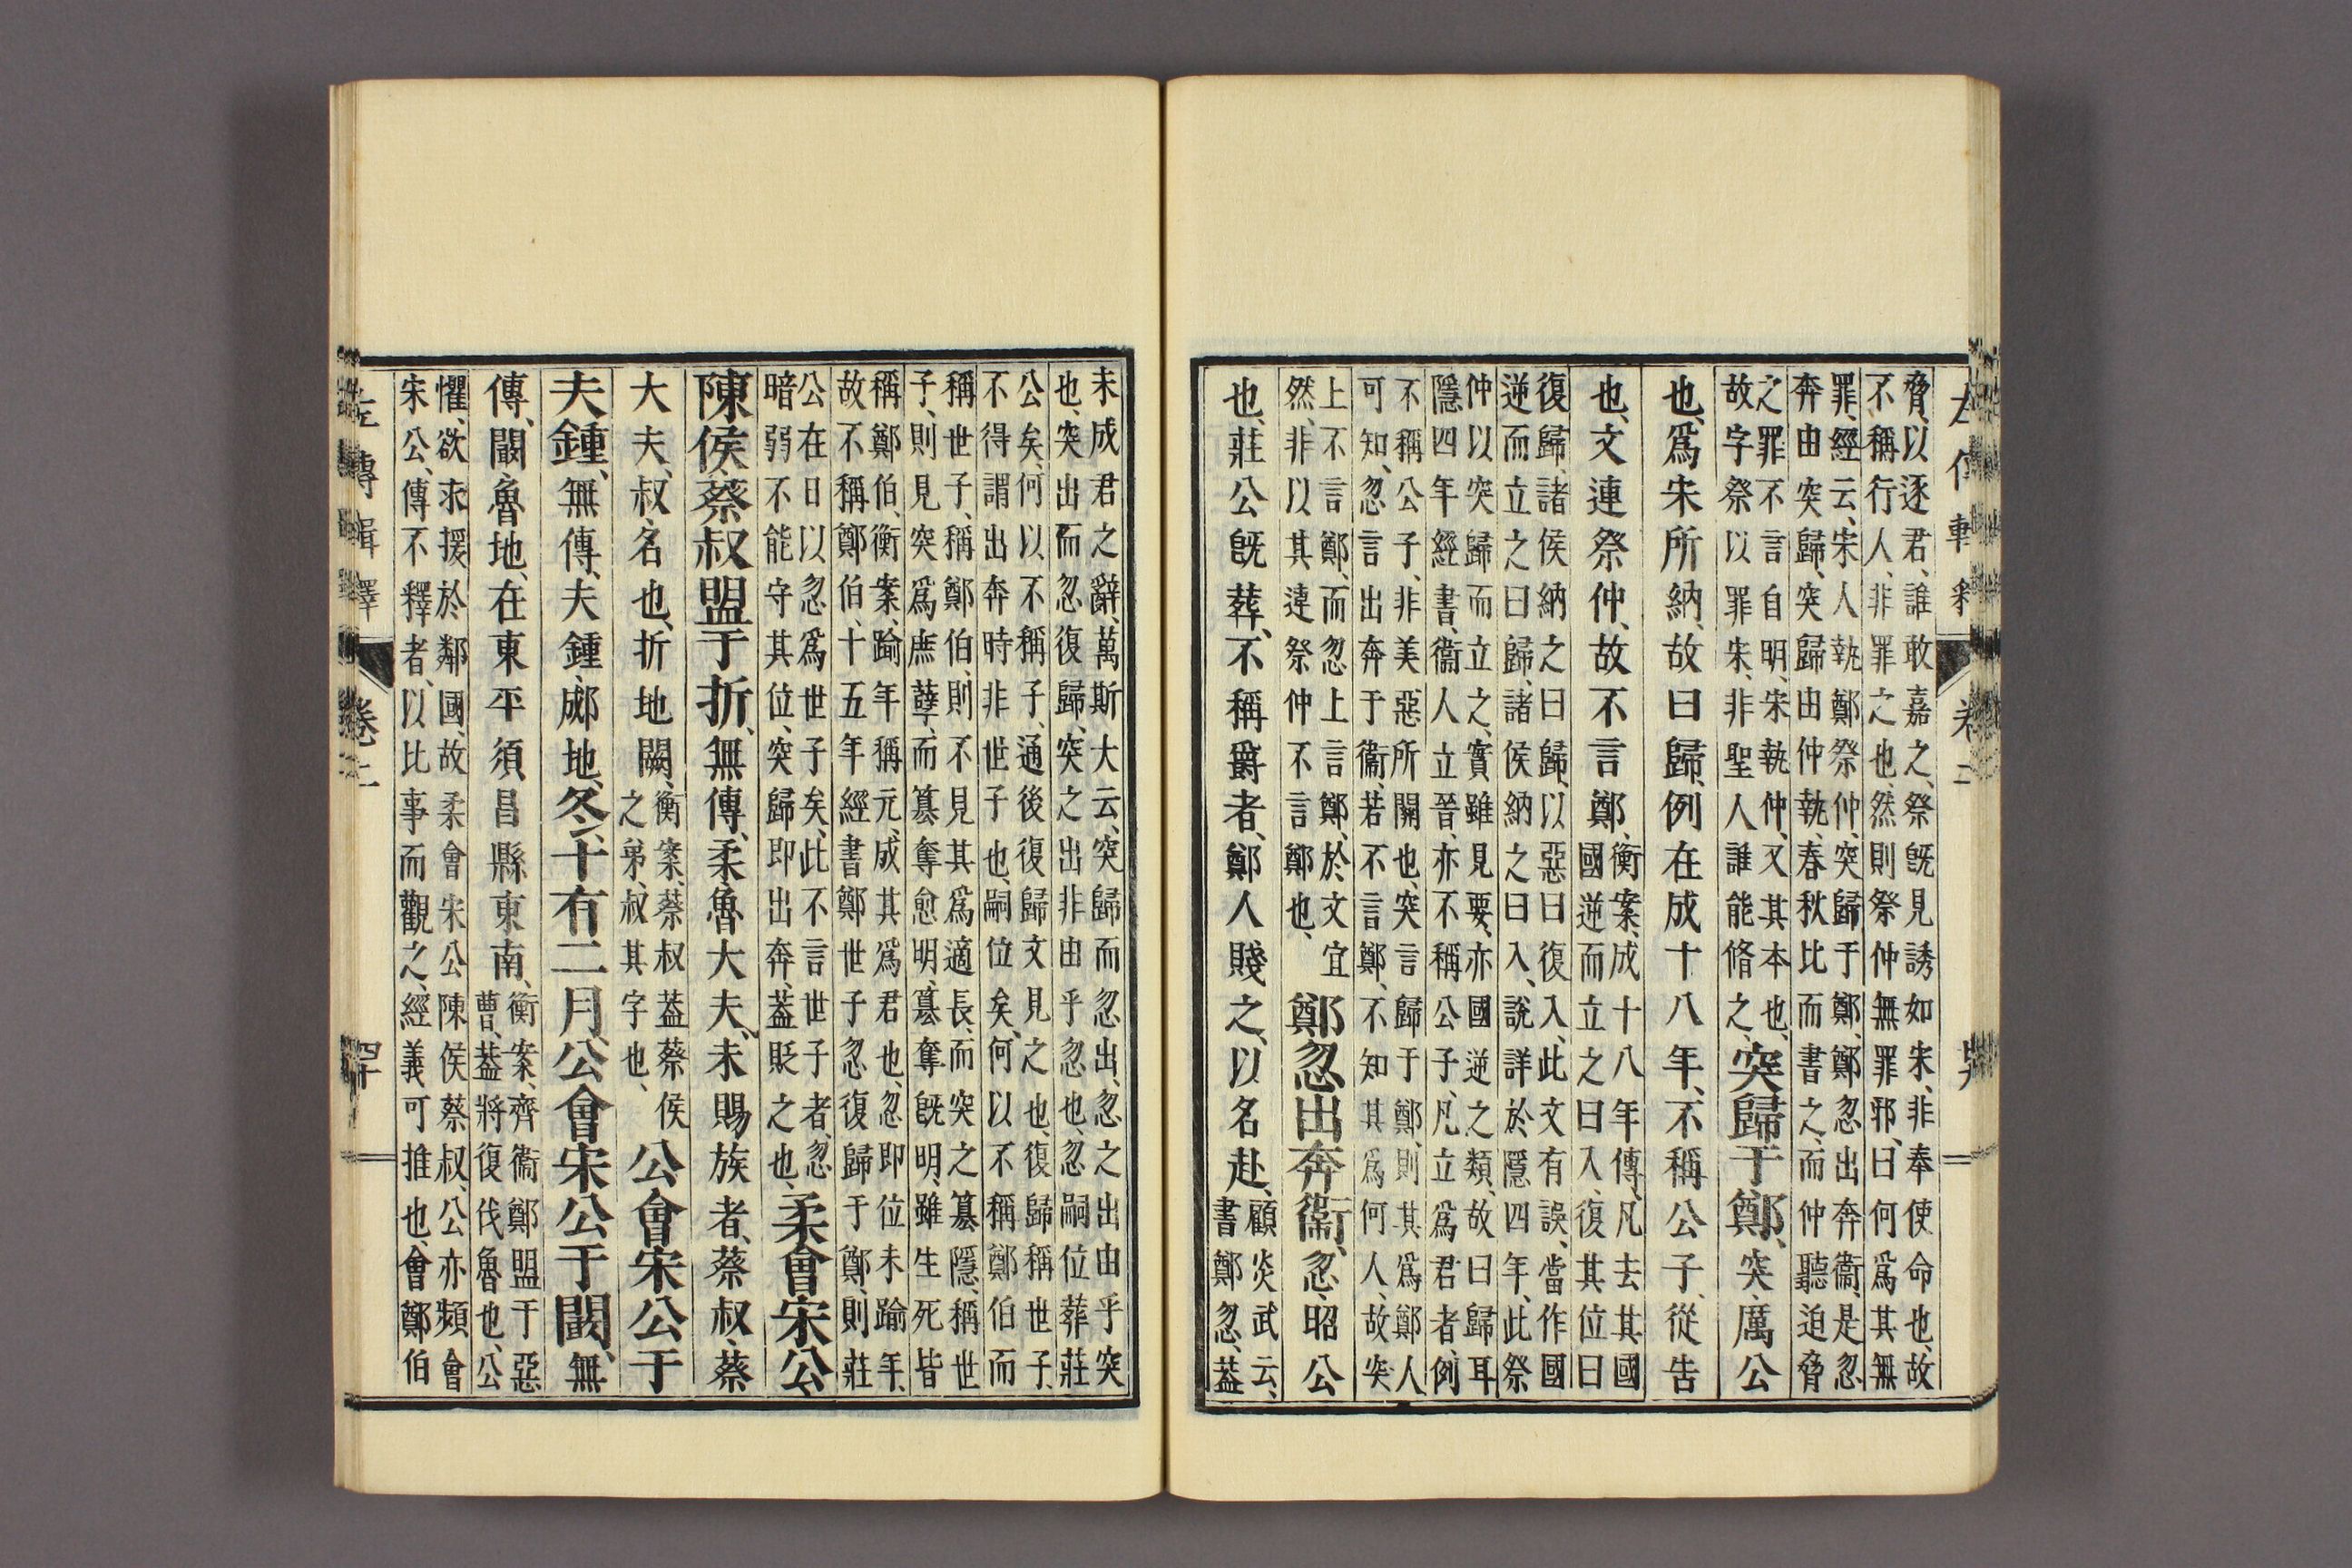 左傳輯釋 卷二
脅、以逐君、誰敢嘉之、祭既見誘如宋、非奉使命也、故
不稱行人、非罪之也、然則祭仲無罪邪、曰何爲其無
罪、經云、宋人執鄭祭仲、突歸于鄭、鄭忽出奔衞、是忽
奔由突歸、突歸由仲執、春秋比而書之、而仲聽迫脅
之罪不言自明、宋執仲、又其本也、
故字祭以罪宋、非聖人誰能脩之、
突歸于鄭、突、厲公
也、爲宋所納、故曰歸、例在成十八年、不稱公子、從告
也、文連祭仲、故不言鄭、
衡案、成十八年傳、凡去其國
國逆而立之曰入、復其位曰
復歸、諸侯納之曰歸、以惡曰復入、此文有誤、當作國
逆而立之曰歸、諸侯納之曰入、說詳於隱四年、此祭
仲以突歸而立之、實雖見要、亦國逆之類、故曰歸耳
隱四年經書、衞人立晉、亦不稱公子、凡立爲君者、例
不稱公子、非美惡所關也、突言歸于鄭、則其爲鄭人
可知、忽言出奔于衞、若不言鄭、不知其爲何人、故突
上不言鄭、而忽上言鄭、於文宜
然、非以其連祭仲不言鄭也、
鄭忽出奔衞、忽、昭公
也、莊公既葬、不稱爵者、鄭人賤之、以名赴、
顧炎武云、
書鄭忽、葢
未成君之辭、萬斯大云、突歸而忽出、忽之出由乎突
也、突出而忽復歸、突之出非由乎忽也、忽嗣位葬莊
公矣、何以不稱子、通後復歸文見之也、復歸稱世子、
不得謂出奔時非世子也、嗣位矣、何以不稱鄭伯而
稱世子、稱鄭伯、則不見其爲適長、而突之篡隱、稱世
子、則見突爲庶孽、而篡奪愈明、篡奪既明、雖生死皆
稱鄭伯、衡案、踰年稱元、成其爲君也、忽即位未踰年、
故不稱鄭伯、十五年經書鄭世子忽復歸于鄭、則莊
公在日、以忽爲世子矣、此不言世子者、忽
暗弱不能守其位、突歸即出奔、葢貶之也、
柔會宋公
陳侯蔡叔盟于折、無傳、柔、魯大夫、未賜族者、蔡叔、蔡
大夫、叔、名也、折地闕、
衡案、蔡叔葢蔡侯
之弟、叔其字也、
公會宋公于
夫鍾、無傳、夫鍾、郕地、冬、十有二月、公會宋公于闞、無
傳、闞、魯地、在東平須昌縣東南、
衡案、齊衞鄭盟于惡
曹、葢將復伐魯也、公
懼、欲求援於鄰國、故柔會宋公陳侯蔡叔、公亦頻會
宋公、傳不釋者、以比事而觀之、經義可推也、會鄭伯
左傳輯釋 卷二 四十